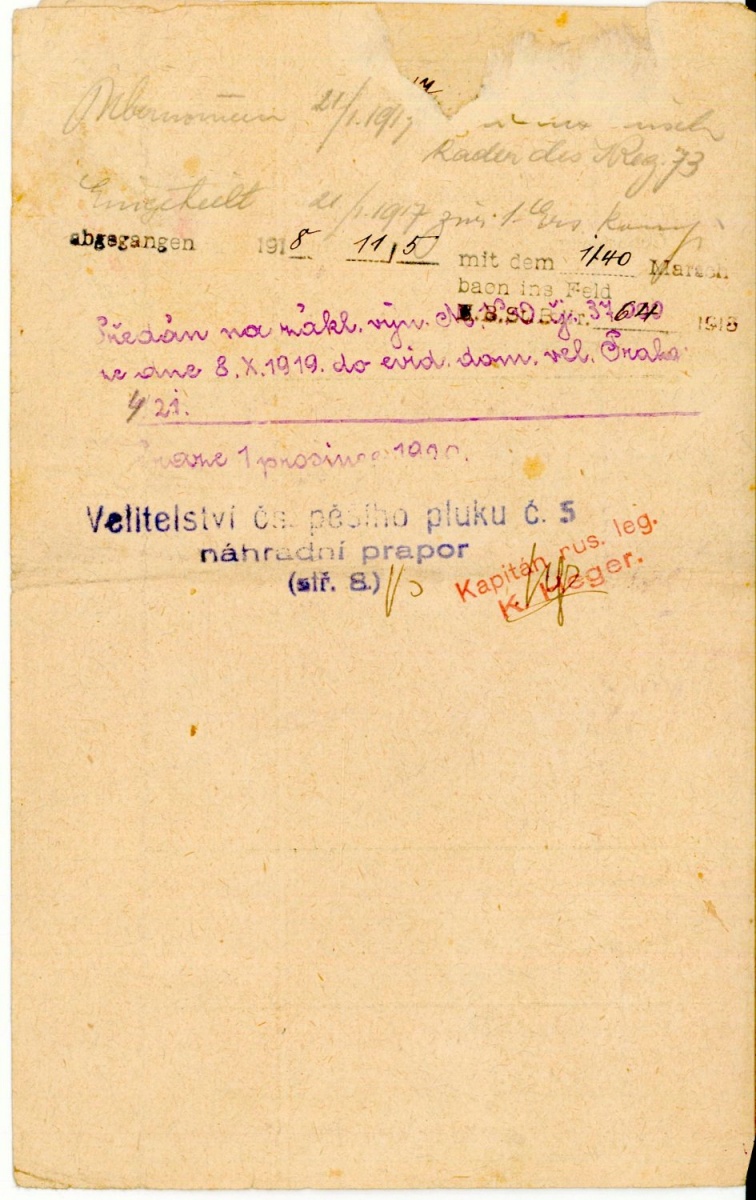 Übernommen 21/1.1917
Kader des IReg. 73
Eingeteilt 21/1.1917 zur 1. Ers. Komp.
abgegangen 1918 11/5 mit dem 1/40 Marsch
baon ins Feld
E.B.St.B. Nr. 64 1918
Předán na zákl. výn. MNO. čj.
ze dne 8.X.1919. do evid. dom. vel. Praha
21.
Praze 1 prosince 19
Velitelství čs. pěšího pluku č. 5
náhradní prapor
(stř. 8.)
Kapitán rus. leg.
K. Heger.